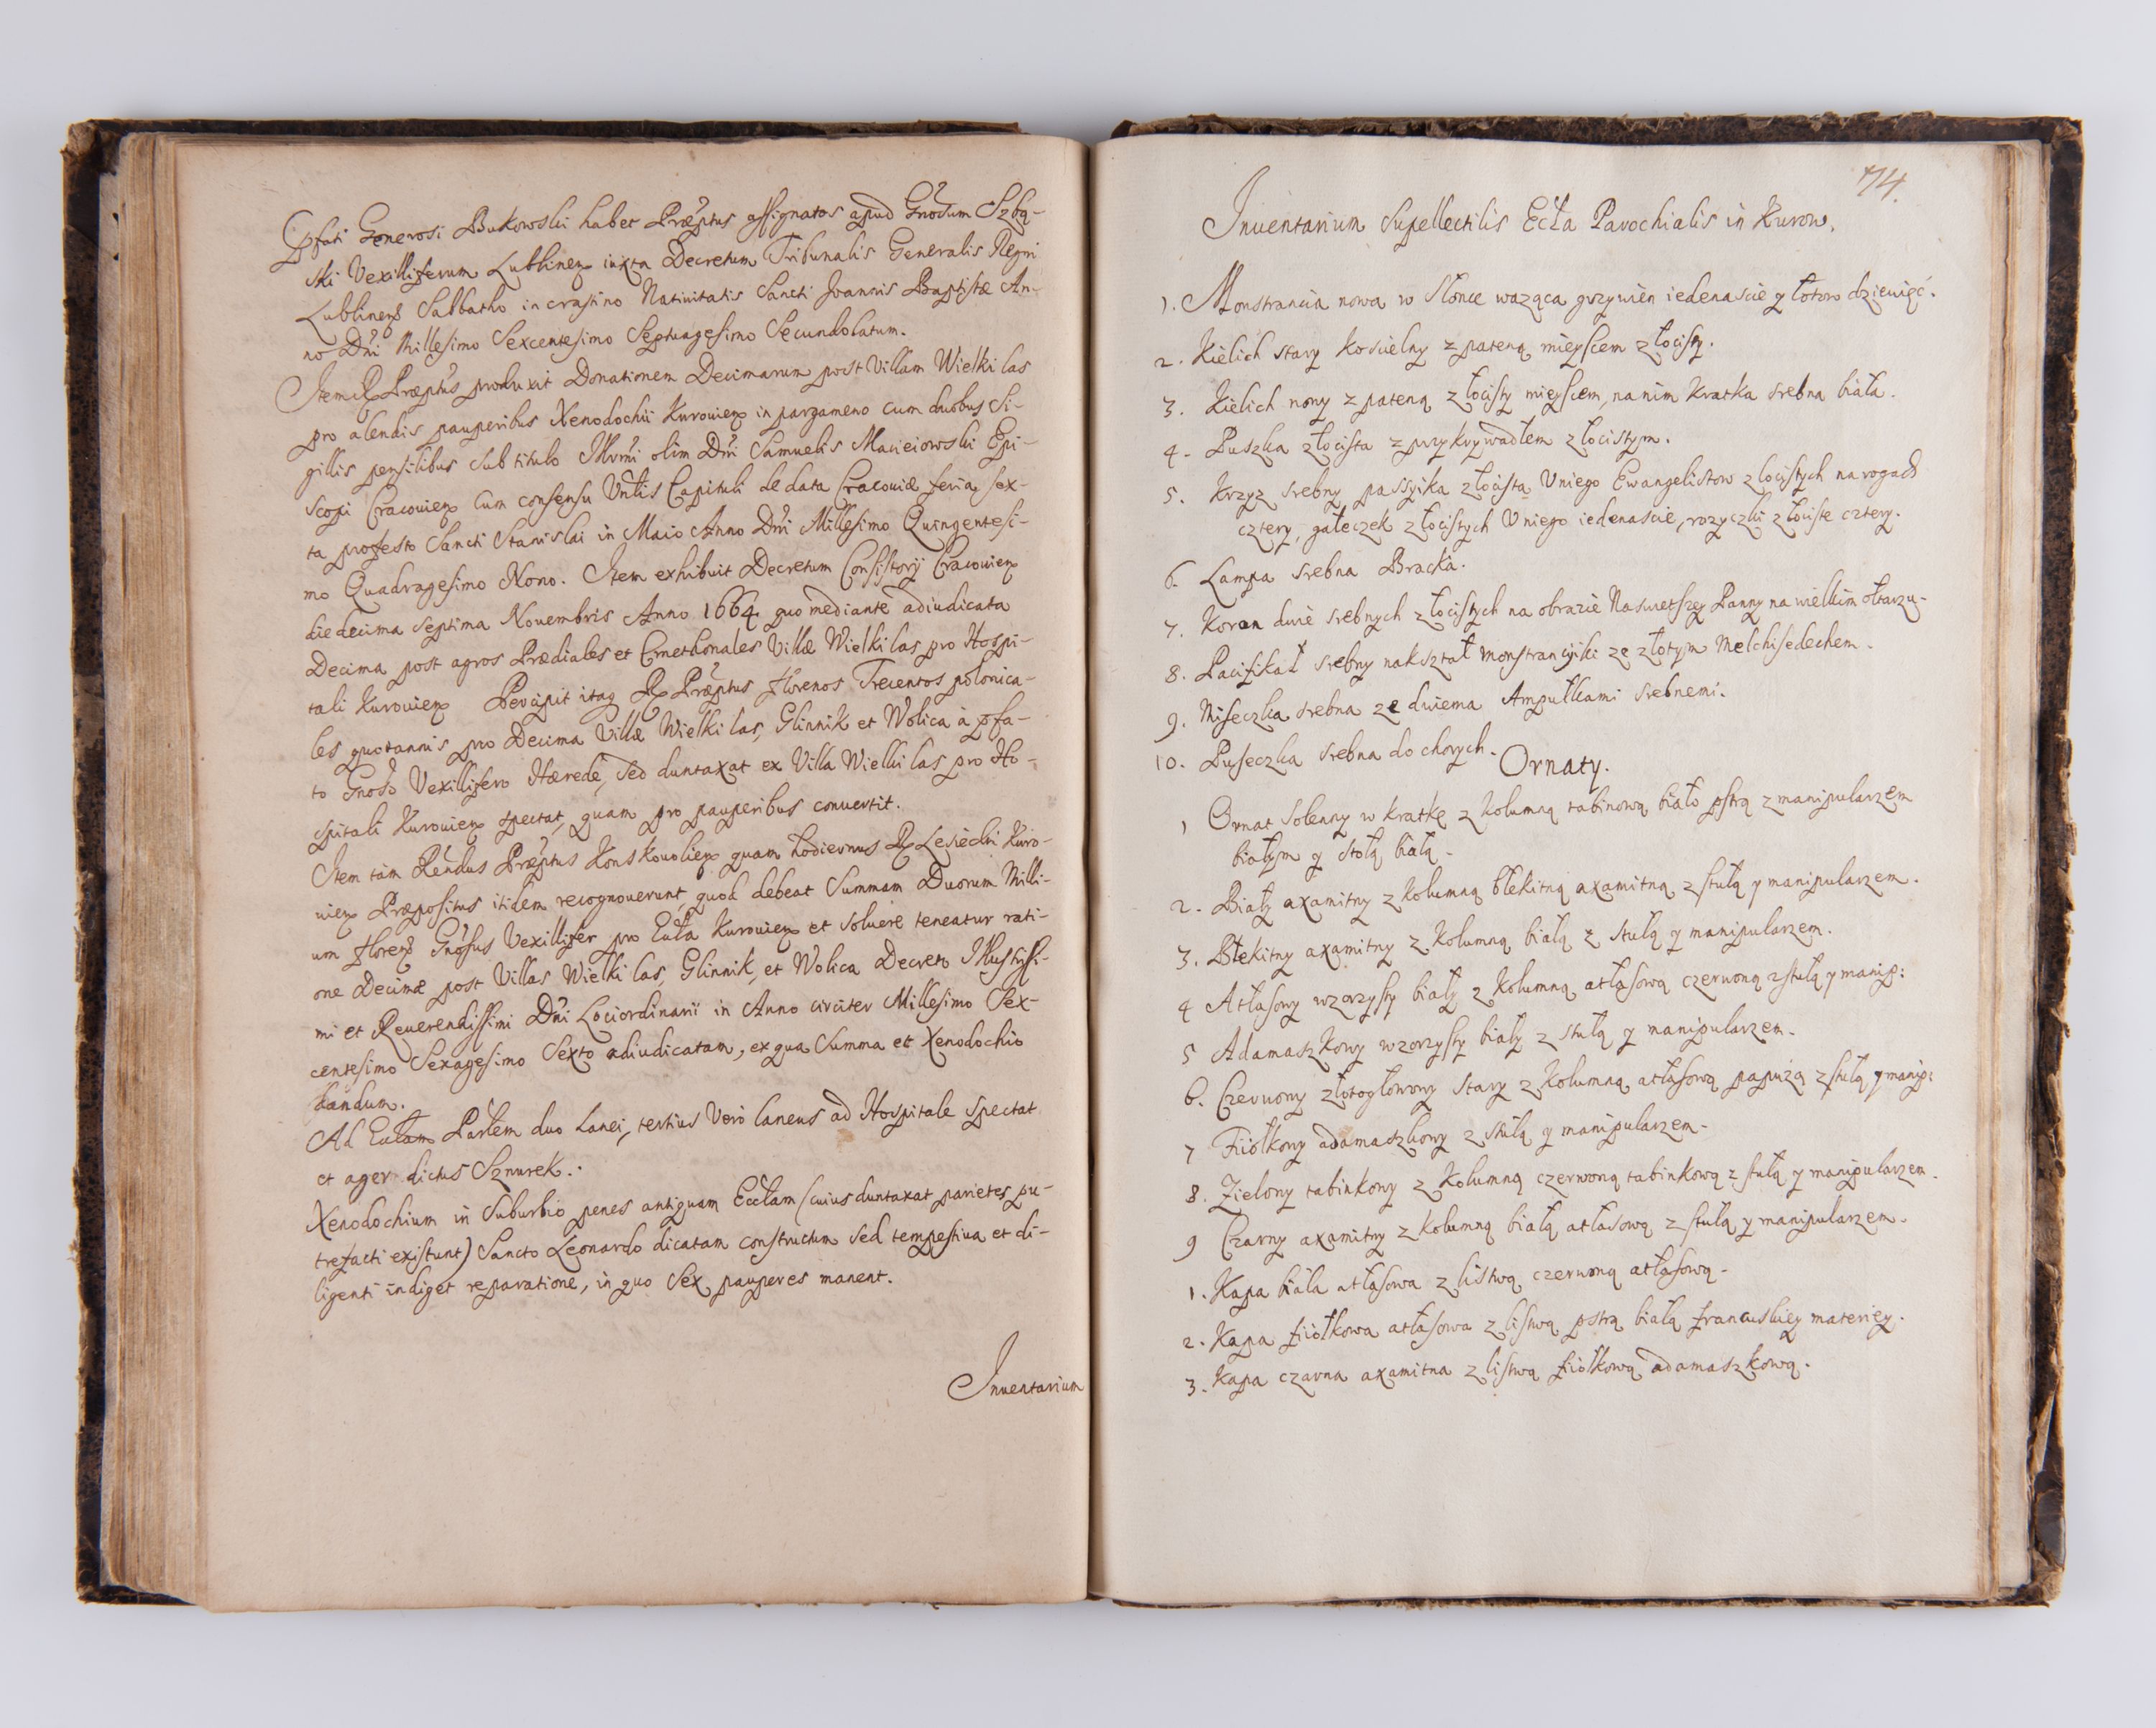 Pfati Generosi Bukowski habet Præptus assignatos apud Gnosum Szbą-
ski Vexilliferum Lublinen iuxta Decretum Tribunalis Generalis Regni
Lublinen Sabbatho in crastino Nativitatis Sancti Joannis Baptistæ An-
no Dni Millesimo Sexcentesimo Septuagesimo Secundo latum.
Item R Præptus produxit Donationem Decimarum post Villam Wielki las
pro alendis pauperibus Xenodochii Kurovien in pargameno cum duobus Si-
gillis pensilibus sub titulo Illrmi olim Dni Samuelis Macieiowski Epi-
scopi Cracovien Cum consensu Vntis Capituli de data Cracoviæ feria sex-
ta profesto Sancti Stanislai in Maio Anno Dni Millesimo Quingentesi-
mo Quadragesimo Nono. Item exhibuit Decretum Consistorij Cracovien
die decima septima Novembris Anno 1664 quo mediante adiudicata
Decima post agros Prædiales et Cmethonales Villæ Wielki las pro Hospi-
tali Kurovien Percipit itaq R Præptus florenos Trecentos polonica-
les quotannis pro Decima Villæ Wielki las, Glinnik et Wolica à pfa-
to Gnoso Vexillifero Hærede, sed duntaxat ex Villa Wielki las pro Ho-
spitali Kurovien spectat, quam pro pauperibus convertit.
Item tàm Rendus Præptus Konskovolien quam hodiernus R Lesiecki Kuro-
vien Præpositus itidem recognoverunt, quod debeat Summam Duorum Milli-
um floren Gnosus Vexillifer pro Ecctā Kurovien et solvere teneatur rati-
one Decimæ post Villas Wielki las, Glinnik, et Wolica Decreto Illustrissi-
mi et Reverendissimi Dni Loci ordinarii in Anno circiter Millesimo Sex-
centesimo Sexagesimo Sexto adiudicatam, ex qua Summa et Xenodochio
dandum.
Ad Ecctam Parlem duo Lanei, tertius Verò laneus ad Hospitale spectat
et ager dictus Sznurek.
Xenodochium in Suburbio penes antiquam Ecctam (cuius duntaxat parietes pu-
trefacti existunt) Sancto Leonardo dicatam constructum sed tempestiva et di-
ligenti indiget reparatione, in quo Sex pauperes manent.
Inventarium
74.
Inventarium Supellectilis Eccła Parochialis in Kurow.
1. Monstrancia nowa w Słonce waząca grzywien iedenascie y łotow dziewięć.
2. Kielich stary Koscielny z pateną mieyscem złocisty.
3. Kielich nowy z pateną złocisty mieyscem, na nim Kratka srebna biała.
4. Puszka złocista z przykrywadłem złocistym.
5. Krzyz srebny passyika złocista V niego Ewangelistow złocistych na rogach
cztery, gałeczek złocistych V niego iedenascie, rozyczki złociste cztery.
6. Lampa srebna Bracka.
7. Koron dwie srebnych złocistych na obrazie Naswietszey Panny na wielkim ołtarzu.
8. Pacifikał srebny nakształt monstrancyiki ze złotym Melchisedechem.
9. Miseczka srebna ze dwiema Ampułkami srebnemi.
10. Puseczka srebna do chorych.
Ornaty.
1 Ornat solenny w kratkę z kolumną tabinową biało pstrą z manipularzem
białym y stołą białą.
2. Biały axamitny z kolumną błekitną axamitną z stułą y manipularzem.
3. Błekitny axamitny z kolumną białą z stułą y manipularzem.
4 Atłasowy wzorzysty biały z kolumną atłasową czerwoną z stułą y manip:
5 Adamaszkowy wzorzysty biały z stułą y manipularzem.
6. Czerwony złotogłowowy stary z kolumną atłasową papuzą z stułą y manip:
7 Fiołkowy adamaszkowy z stułą y manipularzem.
8. Zielony tabinkowy z kolumną czerwoną tabinkową z stułą y manipularzem.
9 Czarny axamitny z kolumną białą atłasową z stułą y manipularzem.
1. Kapa biała atłasowa z listwą czerwoną atłasową.
2. Kapa fiołkowa atłasowa z listwą pstrą białą francuskiey materiey.
3. Kapa czarna axamitna z listwą fiołkową adamaszkową.